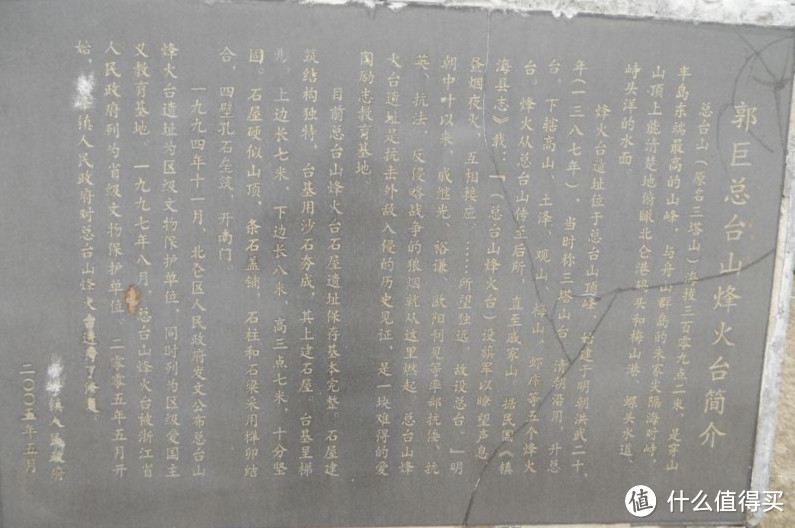 郭巨总台山烽火台简介
总台山（原名三塔山）海拔三百零九点二米，是穿山
半岛东端最高的山峰，与舟山群岛的朱家尖隔海对峙，
山顶上能清楚地俯眼北仑港码头和梅山港、螺头水道、
峙头洋的水面。
烽火台遗址位于总台山顶峰，始建于明朝洪武二十
年（一三八七年），当时称三塔山台，清朝沿用，升总
台，下辖高山、土泽、观山、梅山、虾康等五个烽火
台，烽火从总台山传至后所，直至戚家山。据民国《镇
海县志》载：「（总台山烽火台）设旗军以瞭望声息，
昼烟夜火，互相接应，……所望独远，故设总台。」明
朝中叶以来，戚继光、裕谦、欧阳利见等率部抗倭、抗
英、抗法，反侵略战争的狼烟就从这里燃起，总台山烽
火台遗址是抗击外敌入侵的历史见证，是一块难得的爱
国励志教育基地。
目前总台山烽火台石屋遗址保存基本完整。石屋建
筑结构独特，台基用沙石夯成，其上建石屋，台基呈梯
形，上边长七米，下边长八米，高三点七米，十分坚
固。石屋硬似山顶，条石盖铺，石柱和石梁采用榫卯结
合，四壁孔石垒筑，开南门。
一九九四年十一月，北仑区人民政府发文公布总台山
烽火台遗址为区级文物保护单位，同时列为区级爱国主
义教育基地。一九九七年八月，总台山烽火台被浙江省
人民政府列为省级文物保护单位。二零零五年五月开
始，镇人民政府对总台山烽火台进行了修复。
镇人民政府
二〇〇五年五月
值 什么值得买